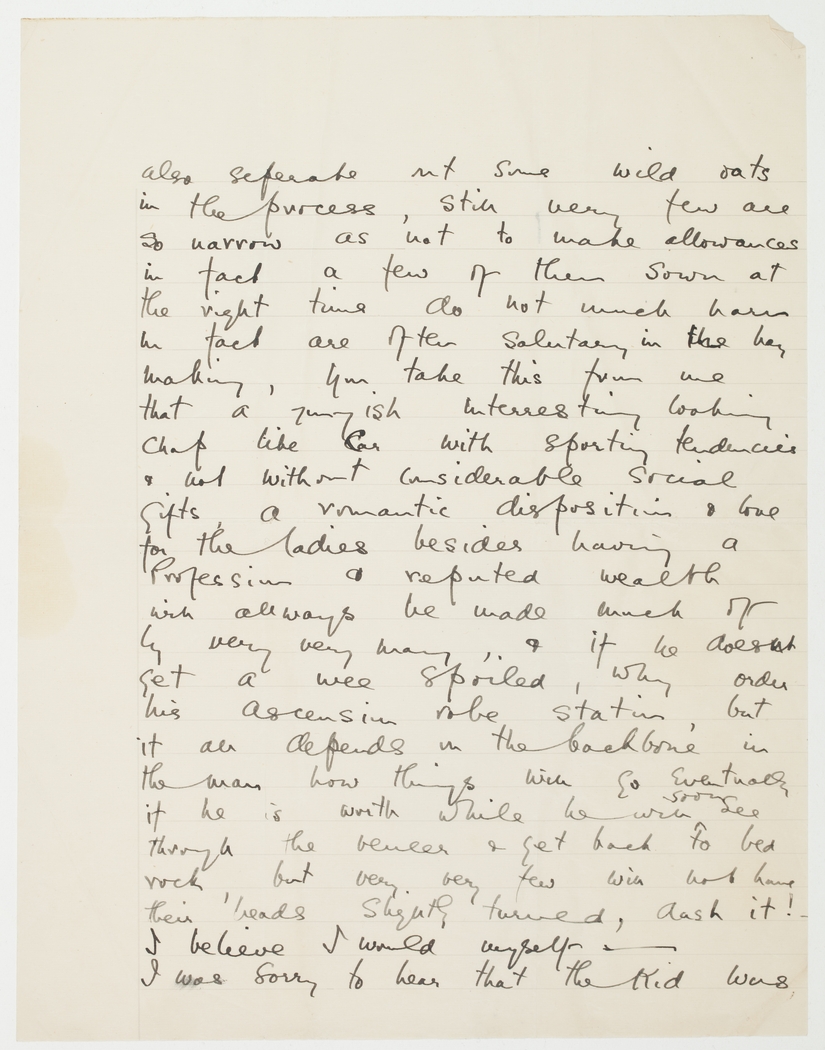 also seperate out some wild oats
in the process, still very few are
so narrow as not to make allowances
in fact a few of them sown at
the right time do not much harm
in fact are often salutary in the hay
making, you take this from me
that a youngish interresting looking
chap like Car with sporting tendencies
& not without considerable social
gifts, a romantic disposition & love
for the ladies besides having a
Profession & reputed wealth
will allways be made much of
by very very many, & if he doesnt
get a wee spoiled, why order
his Ascension robe station, but
it all depends on the backbone in
the man how things will go Eventually
if he is worth while he will soon see
through the veneer & get back to bed
rock, but very very few will not have
their heads slightly turned, dash it! -
I believe I would myself —
I was sorry to hear that the Kid was